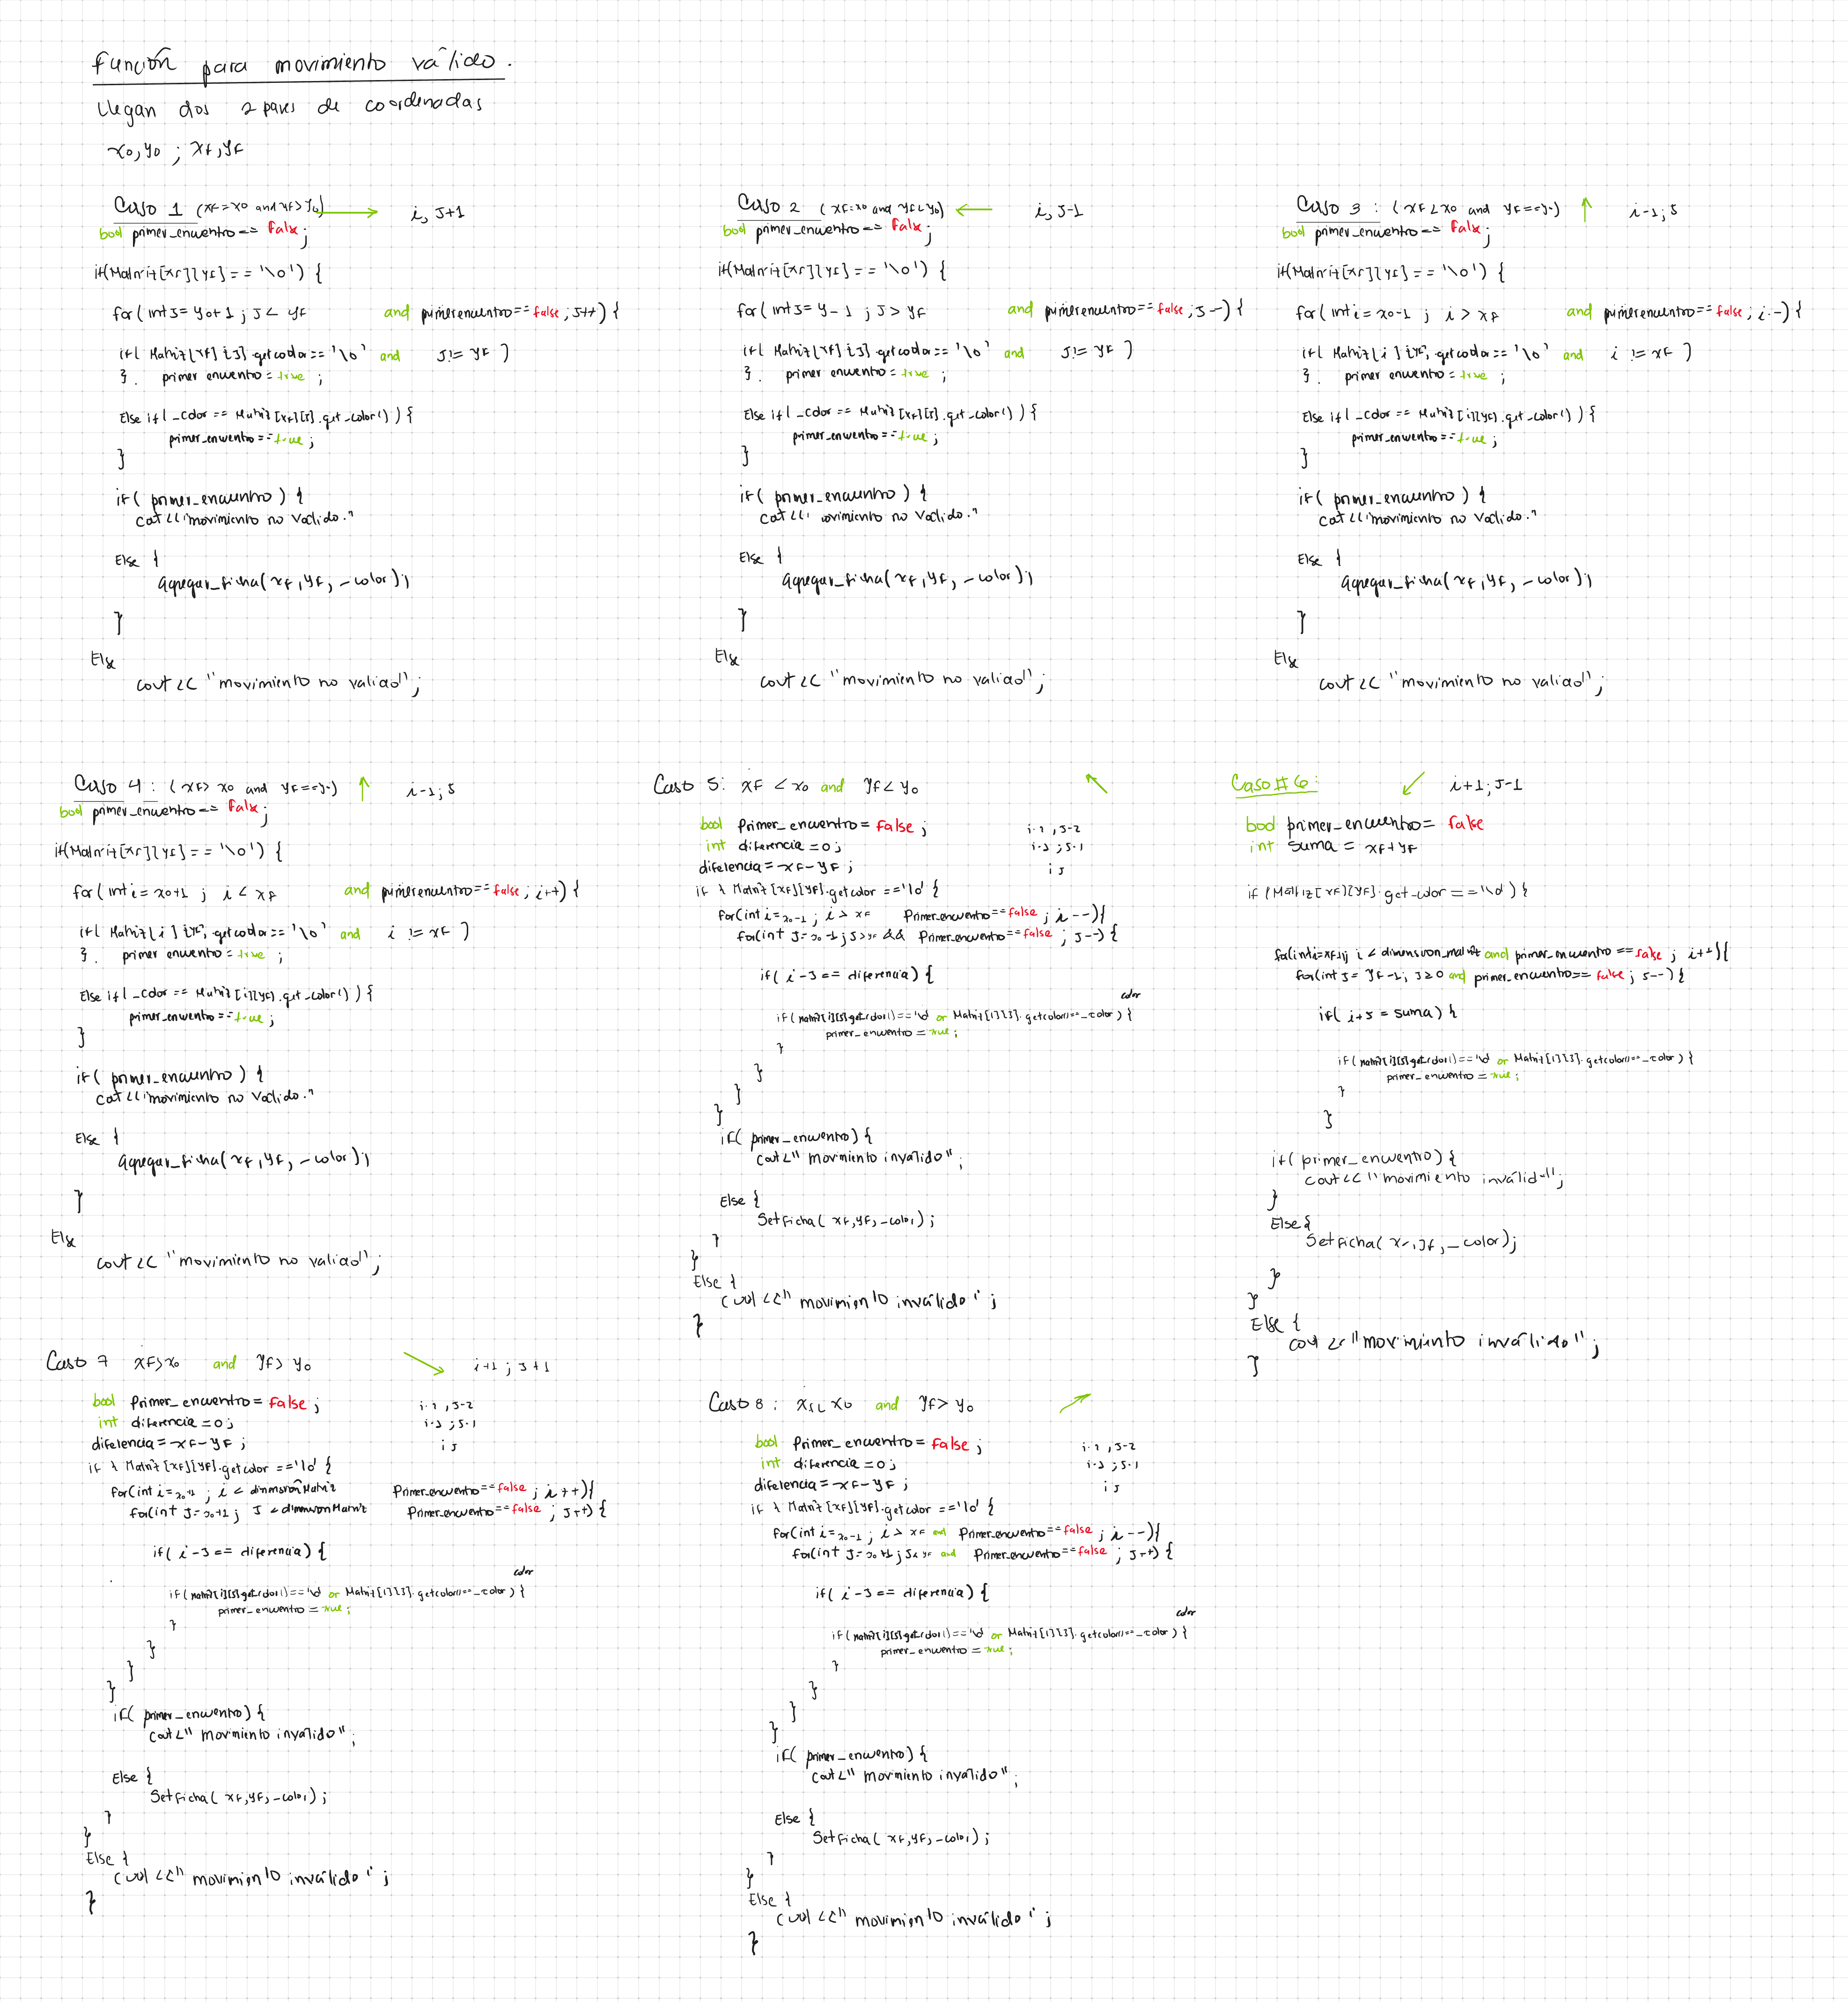 función para movimiento válido.
llegan dos 2 pares de coordenadas
xo,yo ; xf,yf
Caso 1 (xf=xo and yf>yo) i, J+1
bool primer_encuentro == false;
if(Matriz[xf][yf] == '\0') {
for(int J=yo+1 ; J< yf and primerencuentro==false ; J++) {
if( Matriz[xf][J].getcolor=='\0' and J!= yf )
}. primer encuentro = true ;
Else if( _color == Matriz[xf][J].get_color() ) {
primer_encuentro == true ;
}
if( primer_encuentro ) {
cout<<"movimiento no valido."
Else {
agregar_ficha(xf,yf,_color);
}
Else
cout << "movimiento no valido";
Caso 2 (xf=xo and yf<yo) i, J-1
bool primer_encuentro == false;
if(Matriz[xf][yf] == '\0') {
for( int J= y-1 ; J > yf and primerencuentro==false ; J-) {
if( Matriz[xf][J].getcolor=='\0' and J!= yf )
}. primer encuentro = true ;
Else if( _color == Matriz[xf][J].get_color() ) {
primer_encuentro == true ;
}
if( primer_encuentro ) {
cout<<' ovimiento no valido."
Else {
agregar_ficha(xf,yf,_color);
}
Else
cout << "movimiento no valido";
Caso 3 : (xf<xo and yf==y-) i-1;J
bool primer_encuentro == false;
if(Matriz[xf][yf] == '\0') {
for( int i= xo-1 ; i > xf and primerencuentro==false ; i--) {
if( Matriz[i][yf].getcolor=='\0' and i != xf )
}. primer encuentro = true ;
Else if( _color == Matriz[i][yf].get_color() ) {
primer_encuentro == true ;
}
if( primer_encuentro ) {
cout<<"movimiento no valido."
Else {
agregar_ficha(xf,yf,_color);
}
Else
cout << "movimiento no valido";
Caso 4 : (xf> xo and yf==y-) i-1;J
bool primer_encuentro == false;
if(Matriz[xf][yf] == '\0') {
for( int i= xo+1 ; i < xf and primerencuentro==false ; i++) {
if( Matriz[i][yf].getcolor=='\0' and i != xf )
}. primer encuentro = true ;
Else if( _color == Matriz[i][yf].get_color() ) {
primer_encuentro == true ;
}
if( primer_encuentro ) {
cout<<"movimiento no valido."
Else {
agregar_ficha(xf,yf,_color);
}
Else
cout << "movimiento no valido";
Caso 5: xf < xo and yf< yo
bool Primer_encuentro = false ; i-2 , J-2
int diferencia = 0 ; i-1 ; J-1
diferencia = xf-yf ; i J
if { Matriz [xf][yf].getcolor =='\0' {
for(int i=xo-1 ; i > xf Primer_encuentro==false ; i--){
for(int J= yo-1 ; J>yf && Primer_encuentro==false ; J--) {
if( i-J == diferencia) {
color
if(matriz[i][J].getcolor()=='\0' or Matriz[i][J].getcolor()==_color) {
primer_encuentro = true ;
}
}
}
}
if( primer_encuentro) {
cout<" movimiento invalido";
Else {
Setficha( xf,yf,_color) ;
}
}
Else {
cout <<" movimiento inválido" ;
}
Caso # 6: i+1 ; J-1
bool primer_encuentro = false
int suma = xf+yf
if (Matriz[xf][yf].get_color =='\0') {
for(int i=xf+1; i < dimension_matriz and primer_encuentro == false ; i++){
for(int J= yf-1; J≥0 and primer_encuentro== false ; J--) {
if( i+J = suma) {
if(matriz[i][J].getcolor()=='\0' or Matriz[i][J].getcolor()==_color) {
primer_encuentro = true ;
}
}
if(primer_encuentro) {
cout<<"movimiento inválido";
}
Else{
Setficha( xf,yf,_color);
}
}
Else {
cout <<"movimiento inválido" ;
}
Caso 7 xf>xo and yf> yo i+1 ; J+1
bool Primer_encuentro = false ; i-2 , J-2
int diferencia = 0 ; i-1 ; J-1
diferencia = xf-yf ; i J
if { Matriz [xf][yf].getcolor =='\0' {
for(int i=xo+1 ; i < dimmsionMatriz Primer_encuentro==false ; i++){
for(int J= yo+1 ; J < dimmsionMatriz Primer_encuentro==false ; J++) {
if( i-J == diferencia) {
color
if(matriz[i][J].getcolor()=='\0' or Matriz[i][J].getcolor()==_color) {
primer_encuentro = true ;
}
}
}
}
if( primer_encuentro) {
cout<" movimiento invalido";
Else {
Setficha( xf,yf,_color) ;
}
}
Else {
cout <<" movimiento inválido" ;
}
Caso 8 : xf< xo and yf> yo
bool Primer_encuentro = false ; i-2 , J-2
int diferencia = 0 ; i-1 ; J-1
diferencia = xf-yf ; i J
if { Matriz [xf][yf].getcolor =='\0' {
for(int i=xo-1 ; i > xf and Primer_encuentro==false ; i--){
for(int J= yo+1 ; J< yf and Primer_encuentro==false ; J++) {
if( i-J == diferencia) {
color
if(matriz[i][J].getcolor()=='\0' or Matriz[i][J].getcolor()==_color) {
primer_encuentro = true ;
}
}
}
}
if( primer_encuentro) {
cout<" movimiento invalido";
Else {
Setficha( xf,yf,_color) ;
}
}
Else {
cout <<" movimiento inválido" ;
}